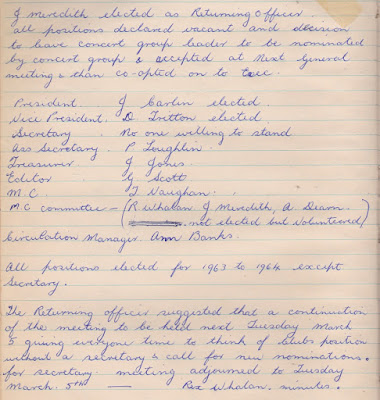 J Meredith elected as Returning Officer.
all positions declared vacant and decision
to leave concert group leader to be nominated
by concert group & accepted at Next General
meeting & than co-opted on to
President J Carlin elected.
Vice President. D Tritton elected.
Secretary. No one willing to stand
Ass Secretary. P. Loughlin.
Treasurer. J Jones.
Editor G Scott
M.C. T Vaughan.
M.C committee - (R Whalan J Meredith, A Dearn.
not elected but volunteered)
Circulation Manager. Ann Banks.
All positions elected for 1963 to 1964 except
Secretary.
The Returning officer suggested that a continuation
of the meeting to be held next Tuesday March
5 giving everyone time to think of Clubs position
without a secretary & call for new nominations.
for secretary. meeting adjourned to Tuesday
March. 5th — Rex Whalan. minutes.